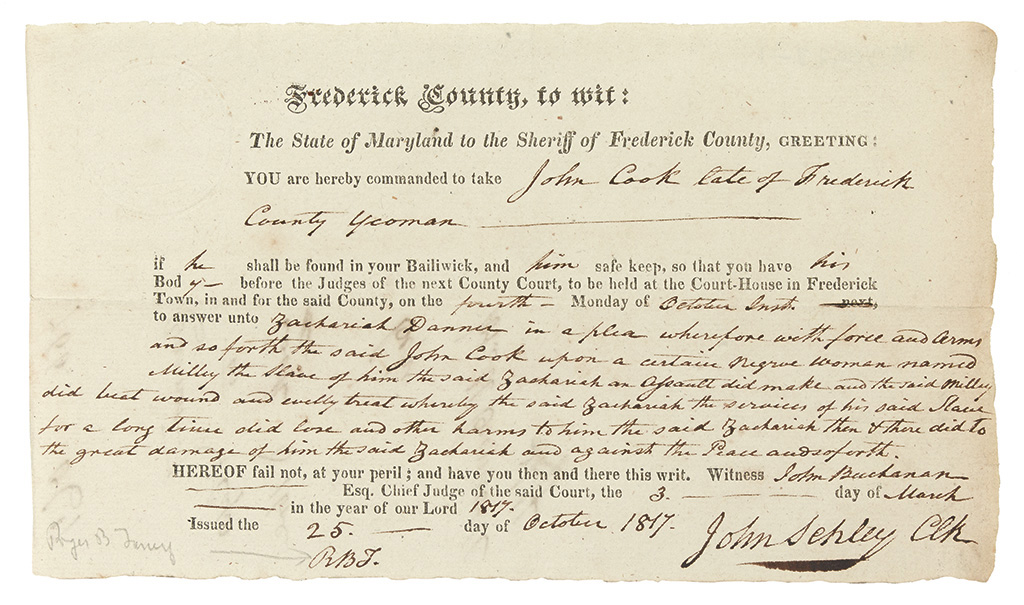 Frederick County, to wit:
The State of Maryland to the Sheriff of Frederick County, GREETING:
YOU are hereby commanded to take John Cook late of Frederick
County Yeoman
if he shall be found in your Bailiwick, and him safe keep, so that you have his
Body before the Judges of the next County Court, to be held at the Court-House in Frederick
Town, in and for the said County, on the fourth Monday of October Inst. next,
to answer unto Zachariah Danner in a plea wherefore with force and Arms
and so forth the said John Cook upon a certain Negroe Woman named
Milley the Slave of him the said Zachariah an Assault did make and the said Milley
did beat wound and evilly treat whereby the said Zachariah the services of his said Slave
for a long time did lose and other harms to him the said Zachariah then & there did to
the great damage of him the said Zachariah and against the Peace and so forth.
HEREOF fail not, at your peril; and have you then and there this writ. Witness John Buchanan
Esq. Chief Judge of the said Court, the 3. day of March
in the year of our Lord 1817.
Issued the 25 day of October 1817.
John Schley Clk
Roger B. Taney
R B T.